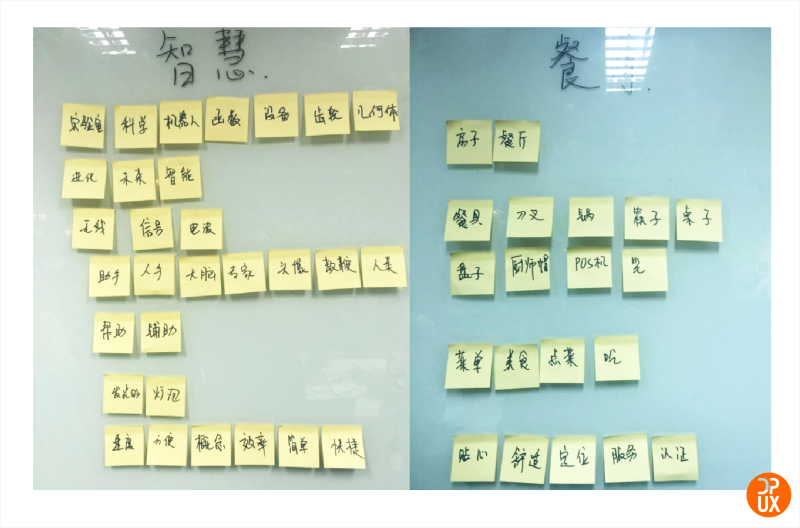 智慧
实验室 科学 机器人 函数 设备 齿轮 几何体
进化 未来 智能
无线 信号 电波
助手 人手 大脑 专家 头像 教授 人类
帮助 辅助
发光的 灯泡
速度 方便 概念 效率 简单 快捷
餐
房子 餐厅
餐具 刀叉 锅 筷子 桌子
盘子 厨师帽 POS机
菜单 美食 点菜 吃
贴心 舒适 定位 服务 认证
DP
UX